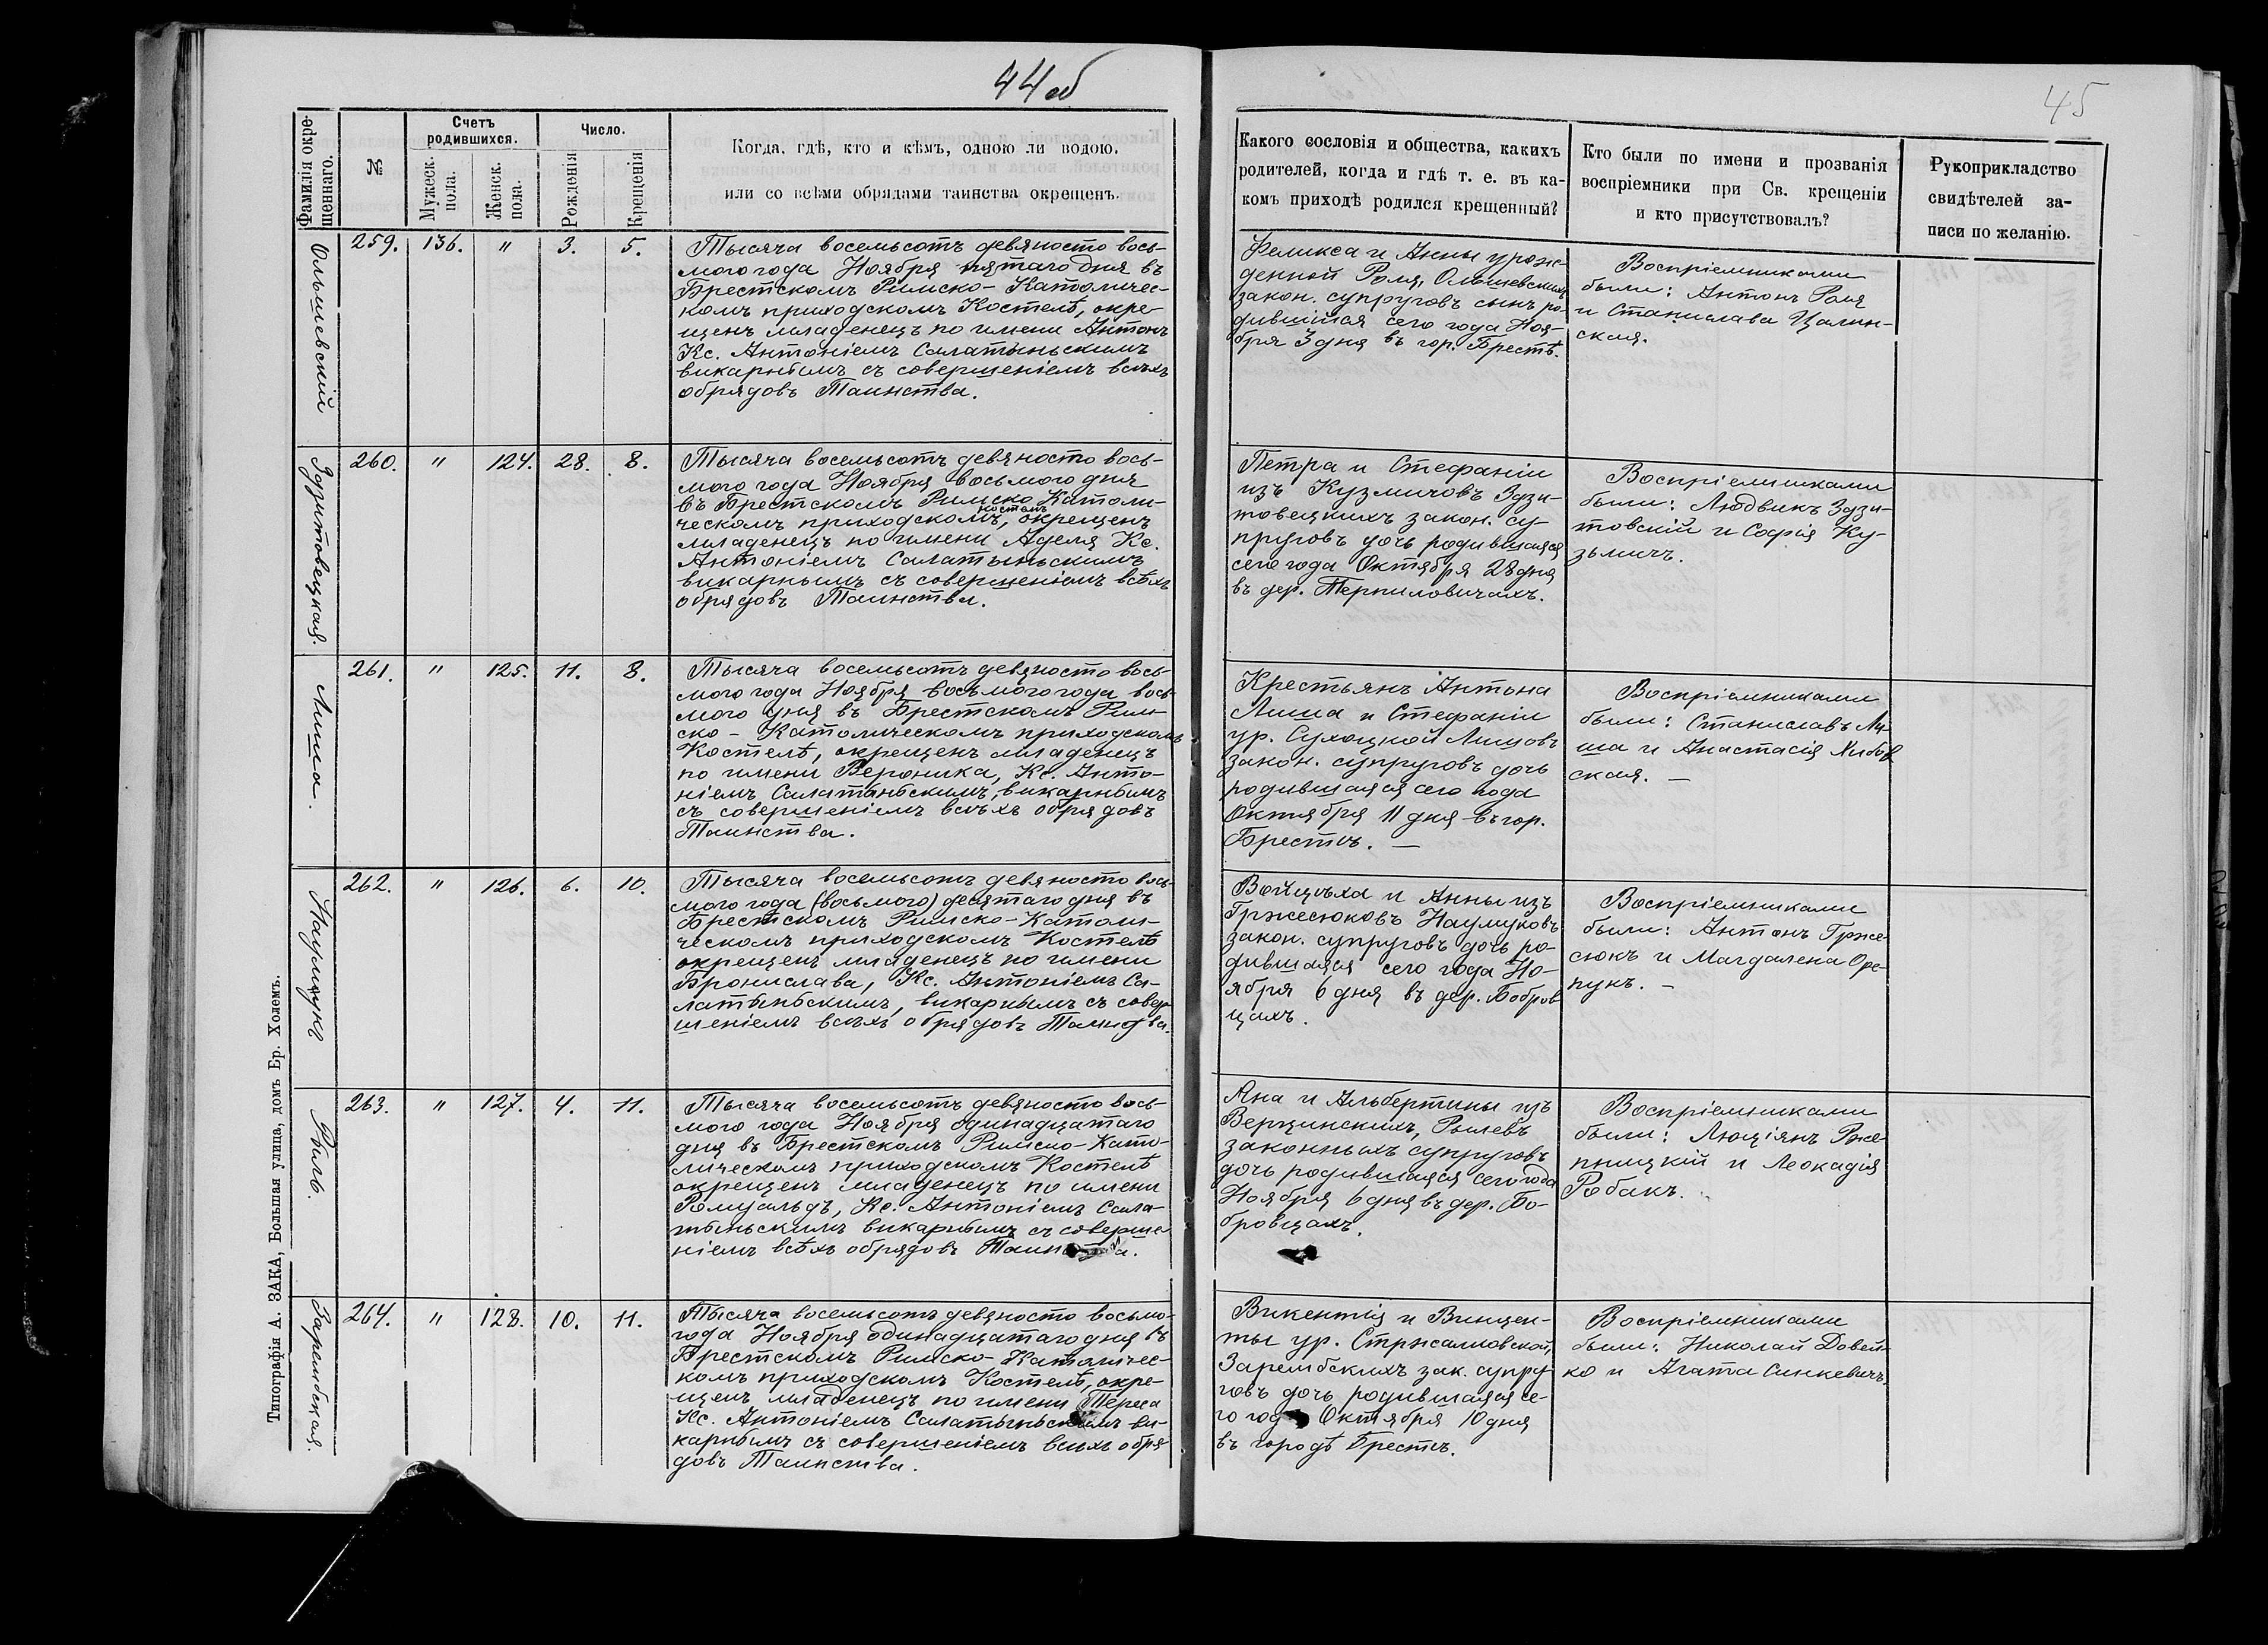 44об
45
Фамилія окре-
щеннаго.
№
Счетъ
родившихся.
Мужеск.
пола.
Женск.
пола.
Число.
Рожденія
Крещенія
Когда, гдѣ, кто и кѣмъ, одною ли водою,
или со всѣми обрядами таинства окрещенъ.
Какого сословія и общества, какихъ
родителей, когда и гдѣ т. е. въ ка-
комъ приходѣ родился крещенный?
Кто были по имени и прозванія
воспріемники при Св. крещеніи
и кто присутствовалъ?
Рукоприкладство
свидѣтелей за-
писи по желанію.
Ольшевскій
259. 136. " 3. 5.
Тысяча восемьсотъ девяносто вось-
мого года Ноября пятаго дня въ
Брестскомъ Римско-Католичес-
комъ приходскомъ Костелѣ, окре-
щенъ младенецъ по имени Антонъ
Кс. Антоніемъ Салатыньскимъ
викарнымъ съ совершеніемъ всѣхъ
обрядовъ Таинства.
Феликса и Анны урож-
денной Роля, Ольшевскихъ
закон. супруговъ сынъ ро-
дившійся сего года Ноя-
бря 3 дня въ гор. Брестѣ.
Воспріемниками
были: Антонъ Роля
и Станислава Цалин-
ская.
Здзитовецкая.
260. " 124. 28. 8.
Тысяча восемьсотъ девяносто вось-
мого года Ноября восьмого дня
въ Брестскомъ Римско Католи-
ческомъ приходскомъ костелѣ, окрещенъ
младенецъ по имени Аделя Кс.
Антоніемъ Салатыньскимъ
викарнымъ съ совершеніемъ всѣхъ
обрядовъ Таинства.
Петра и Стефаніи
изъ Кузмичовъ Здзи-
товецкихъ закон. су-
пруговъ дочь родившаяся
сего года Октября 28 дня
въ дер. Терпиловичахъ.
Воспріемниками
были: Людвикъ Здзи-
товскій и Софія Ку-
зьмичъ.
Лиша.
261. " 125. 11. 8.
Тысяча восемьсотъ девяносто вось-
мого года Ноября восьмого года вось-
мого дня въ Брестскомъ Рим-
ско-Католическомъ приходскомъ
Костелѣ, окрещенъ младенецъ
по имени Вероника, Кс. Анто-
ніемъ Салатаньскимъ, викарнымъ
съ совершеніемъ всѣхъ обрядовъ
Таинства.
Крестьянъ Антона
Лиша и Стефаніи
ур. Сухоцкой Лишовъ
закон. супруговъ дочь
родившаяся сего года
Октября 11 дня въ гор.
Брестѣ. —
Воспріемниками
были: Станиславъ Ли-
ша и Анастасія
ская. —
Наумукъ
262. " 126. 6. 10.
Тысяча восемьсотъ девяносто вось-
мого года (восьмого) десятаго дня въ
Брестскомъ Римско-Католи-
ческомъ приходскомъ Костелѣ
окрещенъ младенецъ по имени
Бронислава, Кс. Антоніемъ Са-
латыньскимъ, викарнымъ съ совер-
шеніемъ всѣхъ обрядовъ Таинства.
Войцѣха и Анны изъ
Гржесюковъ Наумуковъ
закон. супруговъ дочь ро-
дившаяся сего года Но-
ября 6 дня въ дер. Бобров-
цахъ.
Воспріемниками
были: Антонъ Грже-
сюкъ и Магдалена Оре-
пукъ. —
Рыль.
263. " 127. 4. 11.
Тысяча восемьсотъ девяносто вось-
мого года Ноября одинадцатаго
дня въ Брестскомъ Римско-Като-
лическомъ приходскомъ Костелѣ
окрещенъ младенецъ по имени
Ромуальдъ, Кс. Антоніемъ Сала-
тыньскимъ викарнымъ съ соверше-
ніемъ всѣхъ обрядовъ Таинства.
Яна и Альбертины изъ
Вержинскихъ, Рылевъ
законныхъ супруговъ
дочь родившаяся сего года
Ноября 6 дня въ дер. Бо-
бровцахъ.
Воспріемниками
были: Люціянъ Рже-
пницкій и Леокадія
Робакъ.
Зарембская.
264. " 128. 10. 11.
Тысяча восемьсотъ девяносто восьмо-
года Ноября одинадцатаго дня въ
Брестскомъ Римско-Католичес-
комъ приходскомъ Костелѣ, окре-
щенъ младенецъ по имени Тереса
Кс. Антоніемъ Салатыньскимъ ви-
карнымъ съ совершеніемъ всѣхъ обря-
довъ Таинства.
Викентія и Винцен-
ты ур. Стржалковской,
Зарембскихъ зак. супру-
говъ дочь родившаяся се-
го года Октября 10 дня
въ городѣ Брестѣ.
Воспріемниками
были: Николай Довей-
ко и Агата Синкевичъ.
Типографія А. ЗАКА, Большая улица, домъ Бр. Холемъ.